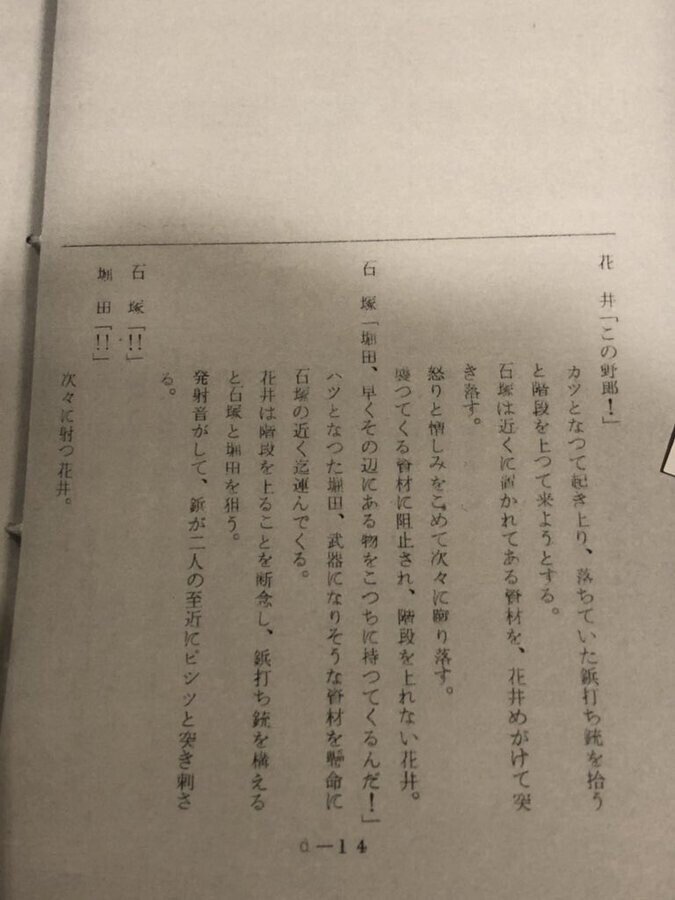 花　井「この野郎！」
カツとなつて起き上り、落ちていた鋲打ち銃を拾う
と階段を上つて来ようとする。
石塚は近くに置かれてある資材を、花井めがけて突
き落す。
怒りと憎しみをこめて次々に蹴り落す。
襲つてくる資材に阻止され、階段を上れない花井。
石　塚「堀田、早くその辺にある物をこつちに持つてくるんだ！」
ハツとなつた堀田、武器になりそうな資材を懸命に
石塚の近く迄運んでくる。
花井は階段を上ることを断念し、鋲打ち銃を構える
と石塚と堀田を狙う。
発射音がして、鋲が二人の至近にピシツと突き刺さ
る。
石　塚「!!」
堀　田「!!」
次々に射つ花井。
a－14